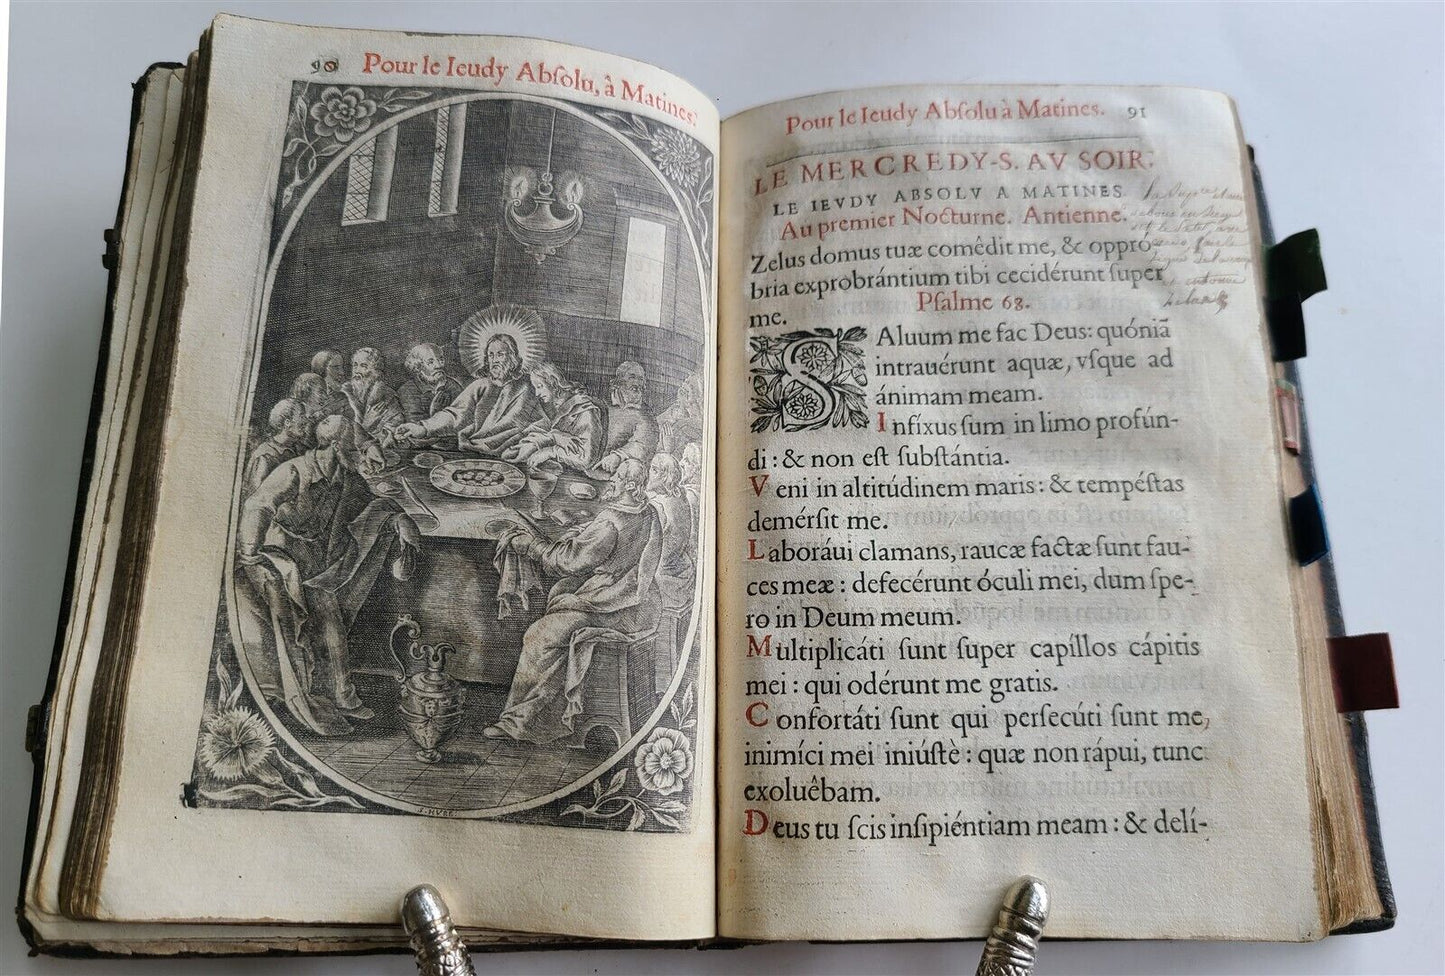 90 Pour le Ieudy Abſolu, à Matines.
I. HVRE.
Pour le Ieudy Abſolu à Matines. 91
LE MERCREDY-S. AV SOIR.
LE IEVDY ABSOLV A MATINES
Au premier Nocturne. Antienne.
Zelus domus tuæ comêdit me, & oppro-
bria exprobrántium tibi cecidérunt ſuper
me. Pſalme 68.
SAluum me fac Deus: quóniã
intrauérunt aquæ, vſque ad
ánimam meam.
Infíxus ſum in limo profún-
di : & non eſt ſubſtántia.
Veni in altitúdinem maris : & tempéſtas
demérſit me.
Laboráui clamans, raucæ factæ ſunt fau-
ces meæ : defecérunt óculi mei, dum ſpe-
ro in Deum meum.
Multiplicáti ſunt ſuper capíllos cápitis
mei : qui odérunt me gratis.
Confortáti ſunt qui perſecúti ſunt me,
inimíci mei iniúſtè : quæ non rápui, tunc
exoluêbam.
Deus tu ſcis inſipiéntiam meam : & delí-